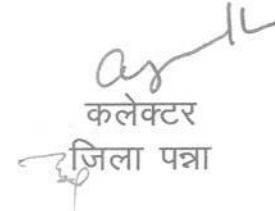 कलेक्टर
जिला पन्ना